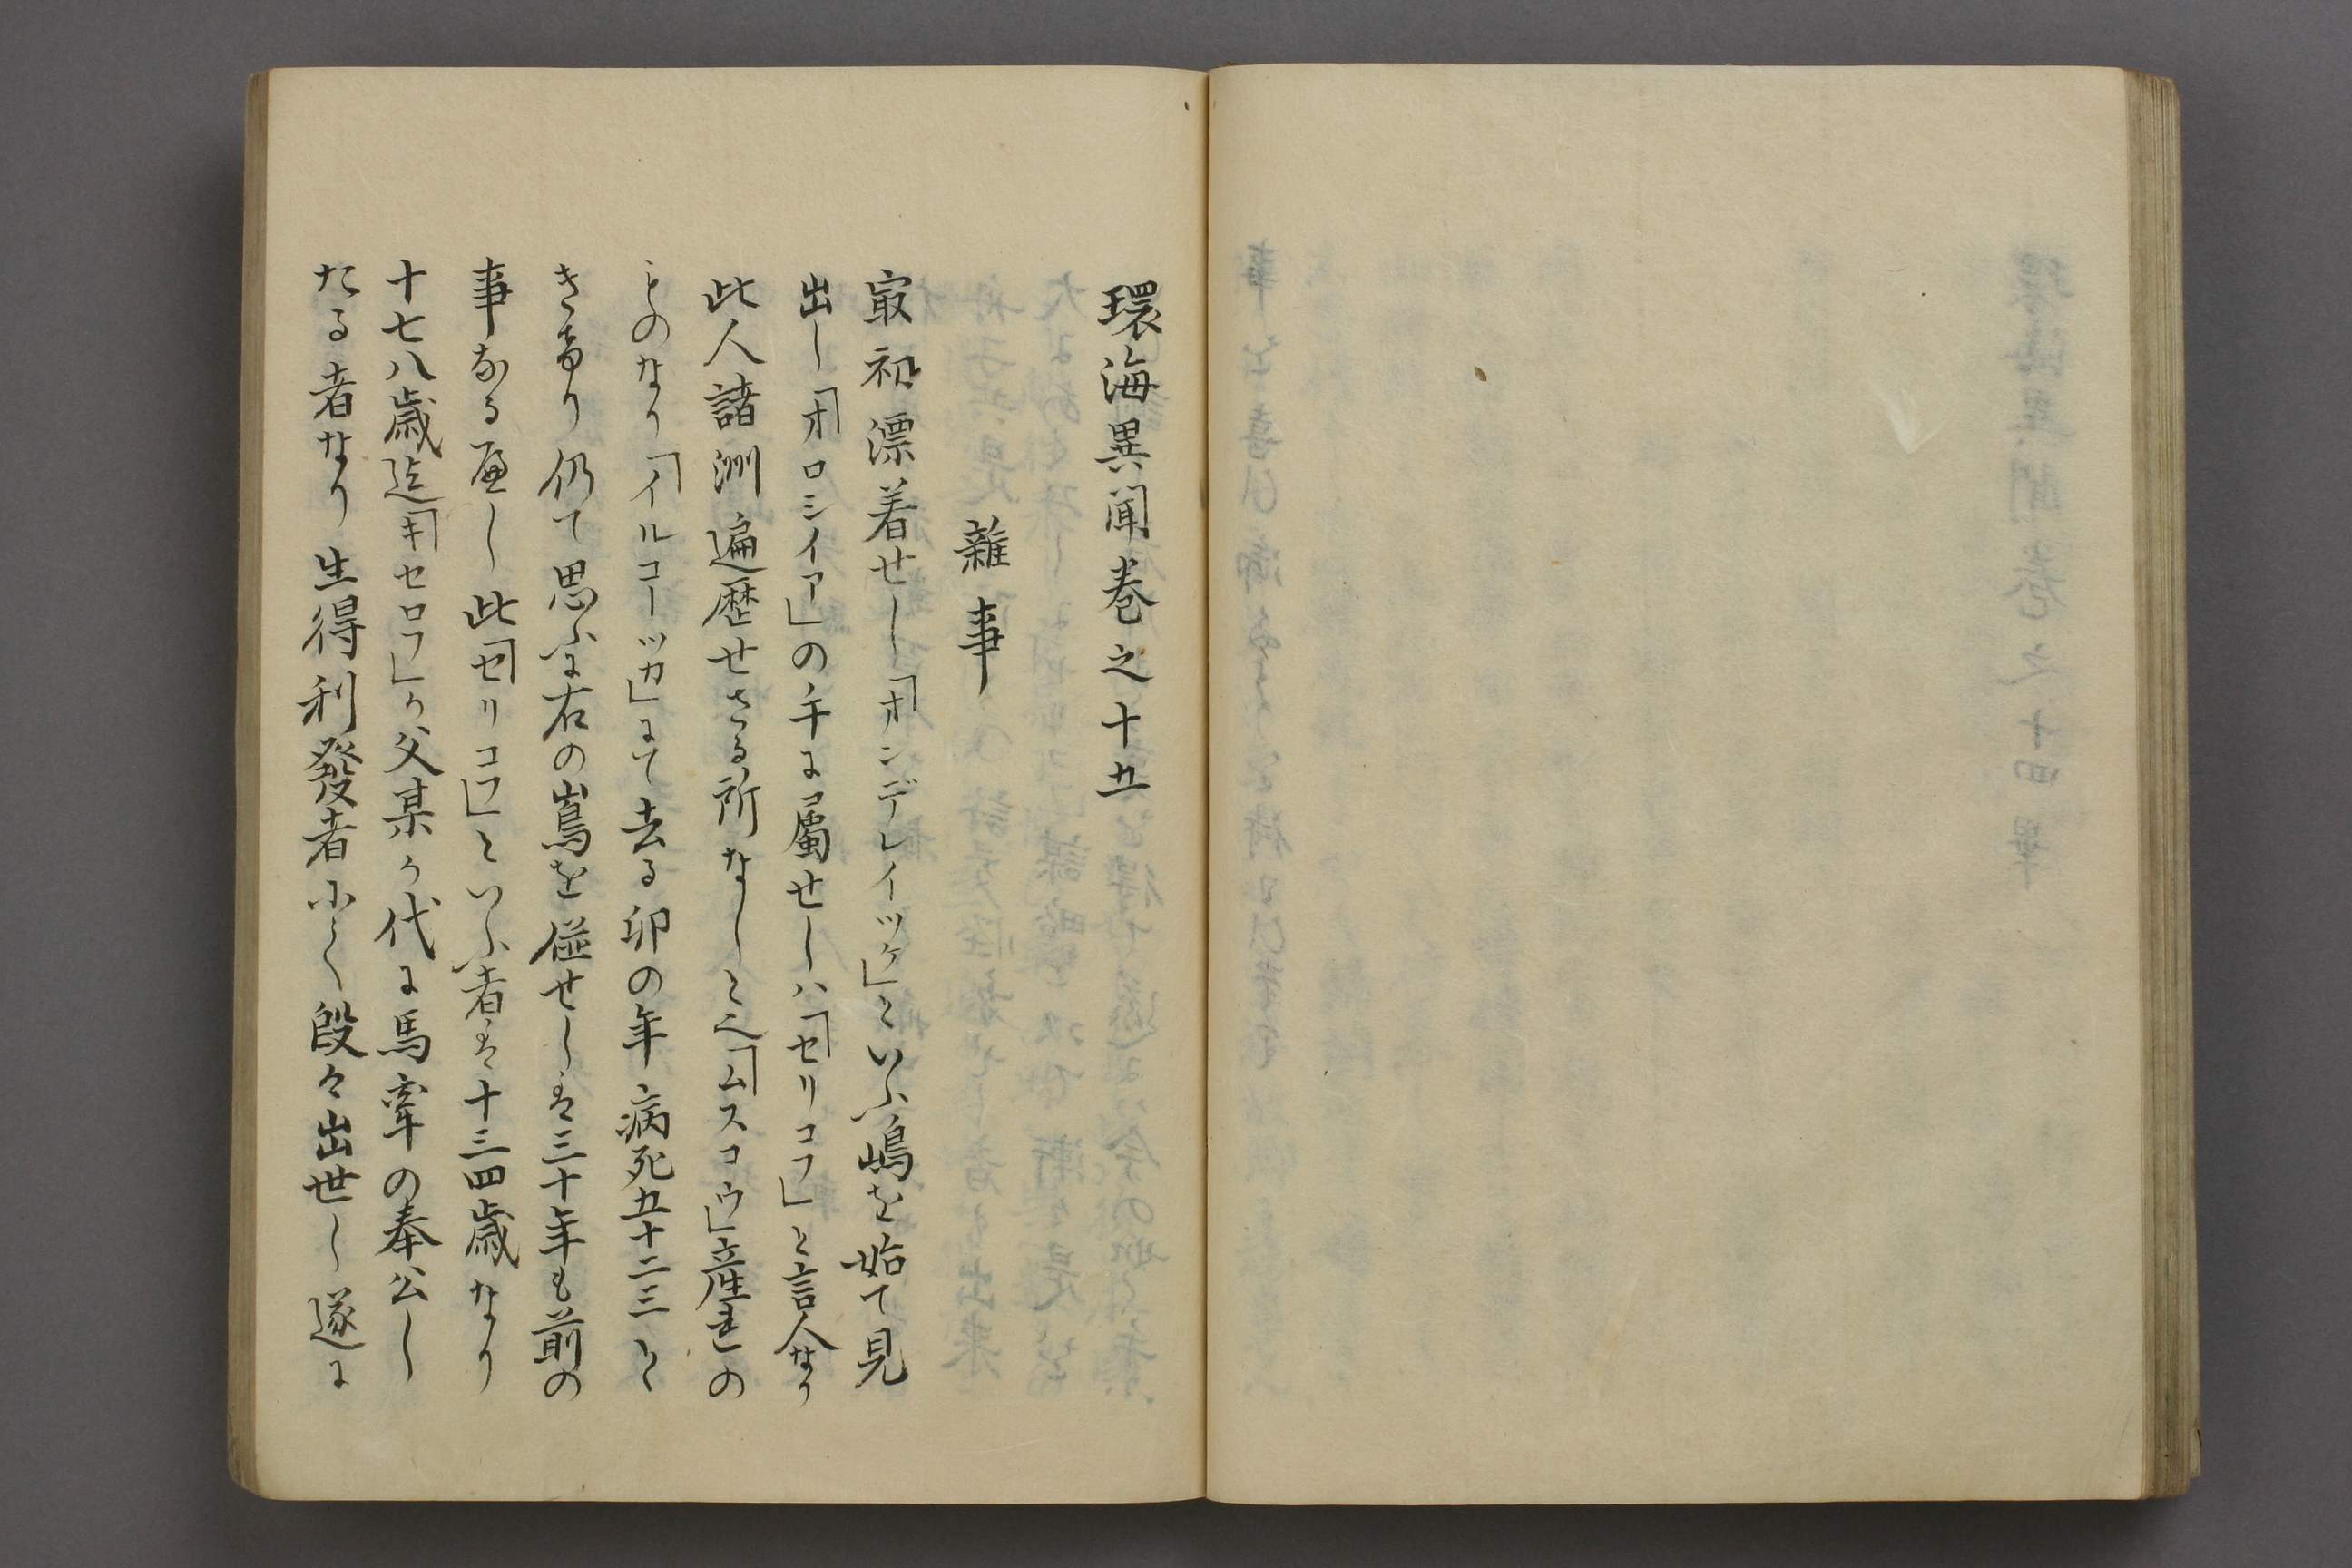 環海異聞巻之十五
雜事
寂初漂着せし「オンデレイツケ」といふ嶋を始て見
出し「オロシイア」の手に属せしハ「セリコフ」と言人なり
此人諸洲遍歴せさる所なしと云「ムスコウ」産れの
ものなり「イルコーツカ」にて去る卯の年病死五十二三と
きけり仍て思ふに右の嶌を碰せしは三十年も前の
事なる へし此「セリコフ」といふ者は十三四歳なり
十七八歳迄「キセロフ」か父某か代に馬牽の奉公し
たる者なり生得利發者にて段々出世し遂に